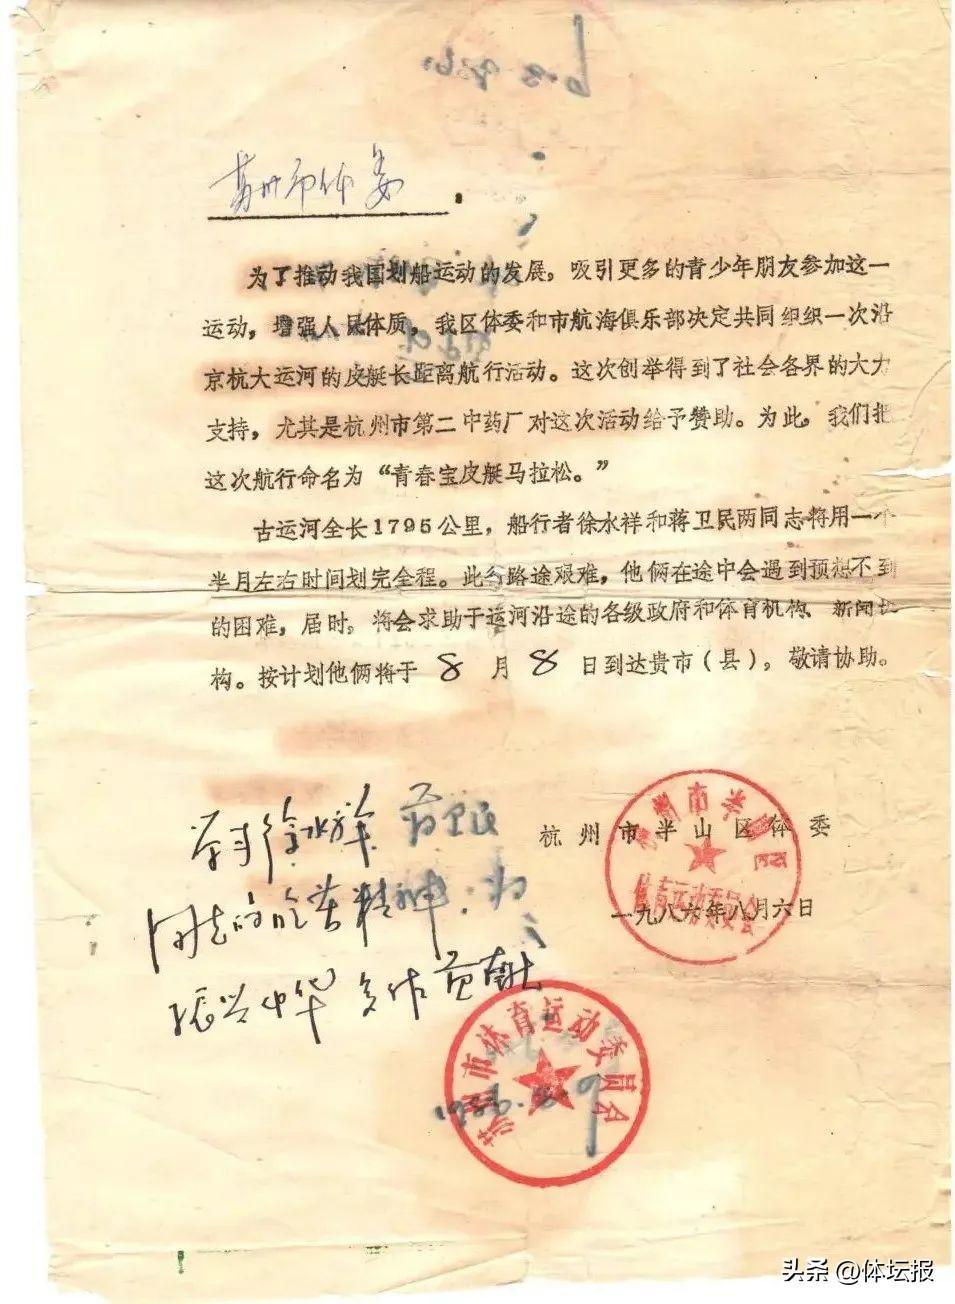 苏州市体委：
为了推动我国划船运动的发展，吸引更多的青少年朋友参加这一
运动，增强人民体质，我区体委和市航海俱乐部决定共同组织一次沿
京杭大运河的皮艇长距离航行活动。这次创举得到了社会各界的大力
支持，尤其是杭州市第二中药厂对这次活动给予赞助。为此，我们把
这次航行命名为“青春宝皮艇马拉松。”
古运河全长1795公里，船行者徐水祥和蒋卫民两同志将用一个
半月左右时间划完全程。此行路途艰难，他俩在途中会遇到预想不到
的困难，届时，将会求助于运河沿途的各级政府和体育机构、新闻机
构。按计划他俩将于8月8日到达贵市（县），敬请协助。
杭州市半山区体委
一九八六年八月六日
杭州市半山区
体育运动委员会
学习徐水祥 蒋卫民
同志的吃苦精神，为
振兴中华多作贡献
苏州市体育运动委员会
1986.8.9
头条 @体坛报